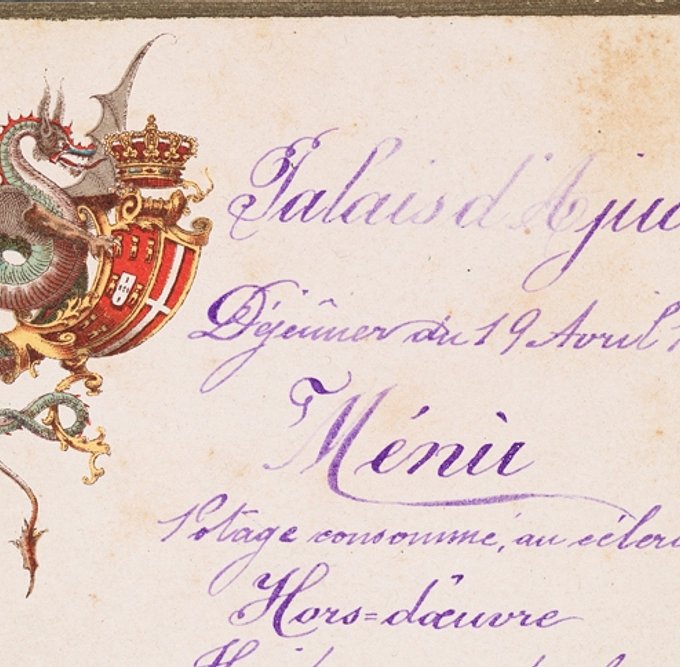 Palais d'Ajud
Déjeûner du 19 Avril 1
Ménù
Potage consommé, au céleri
Hors=d'œuvre